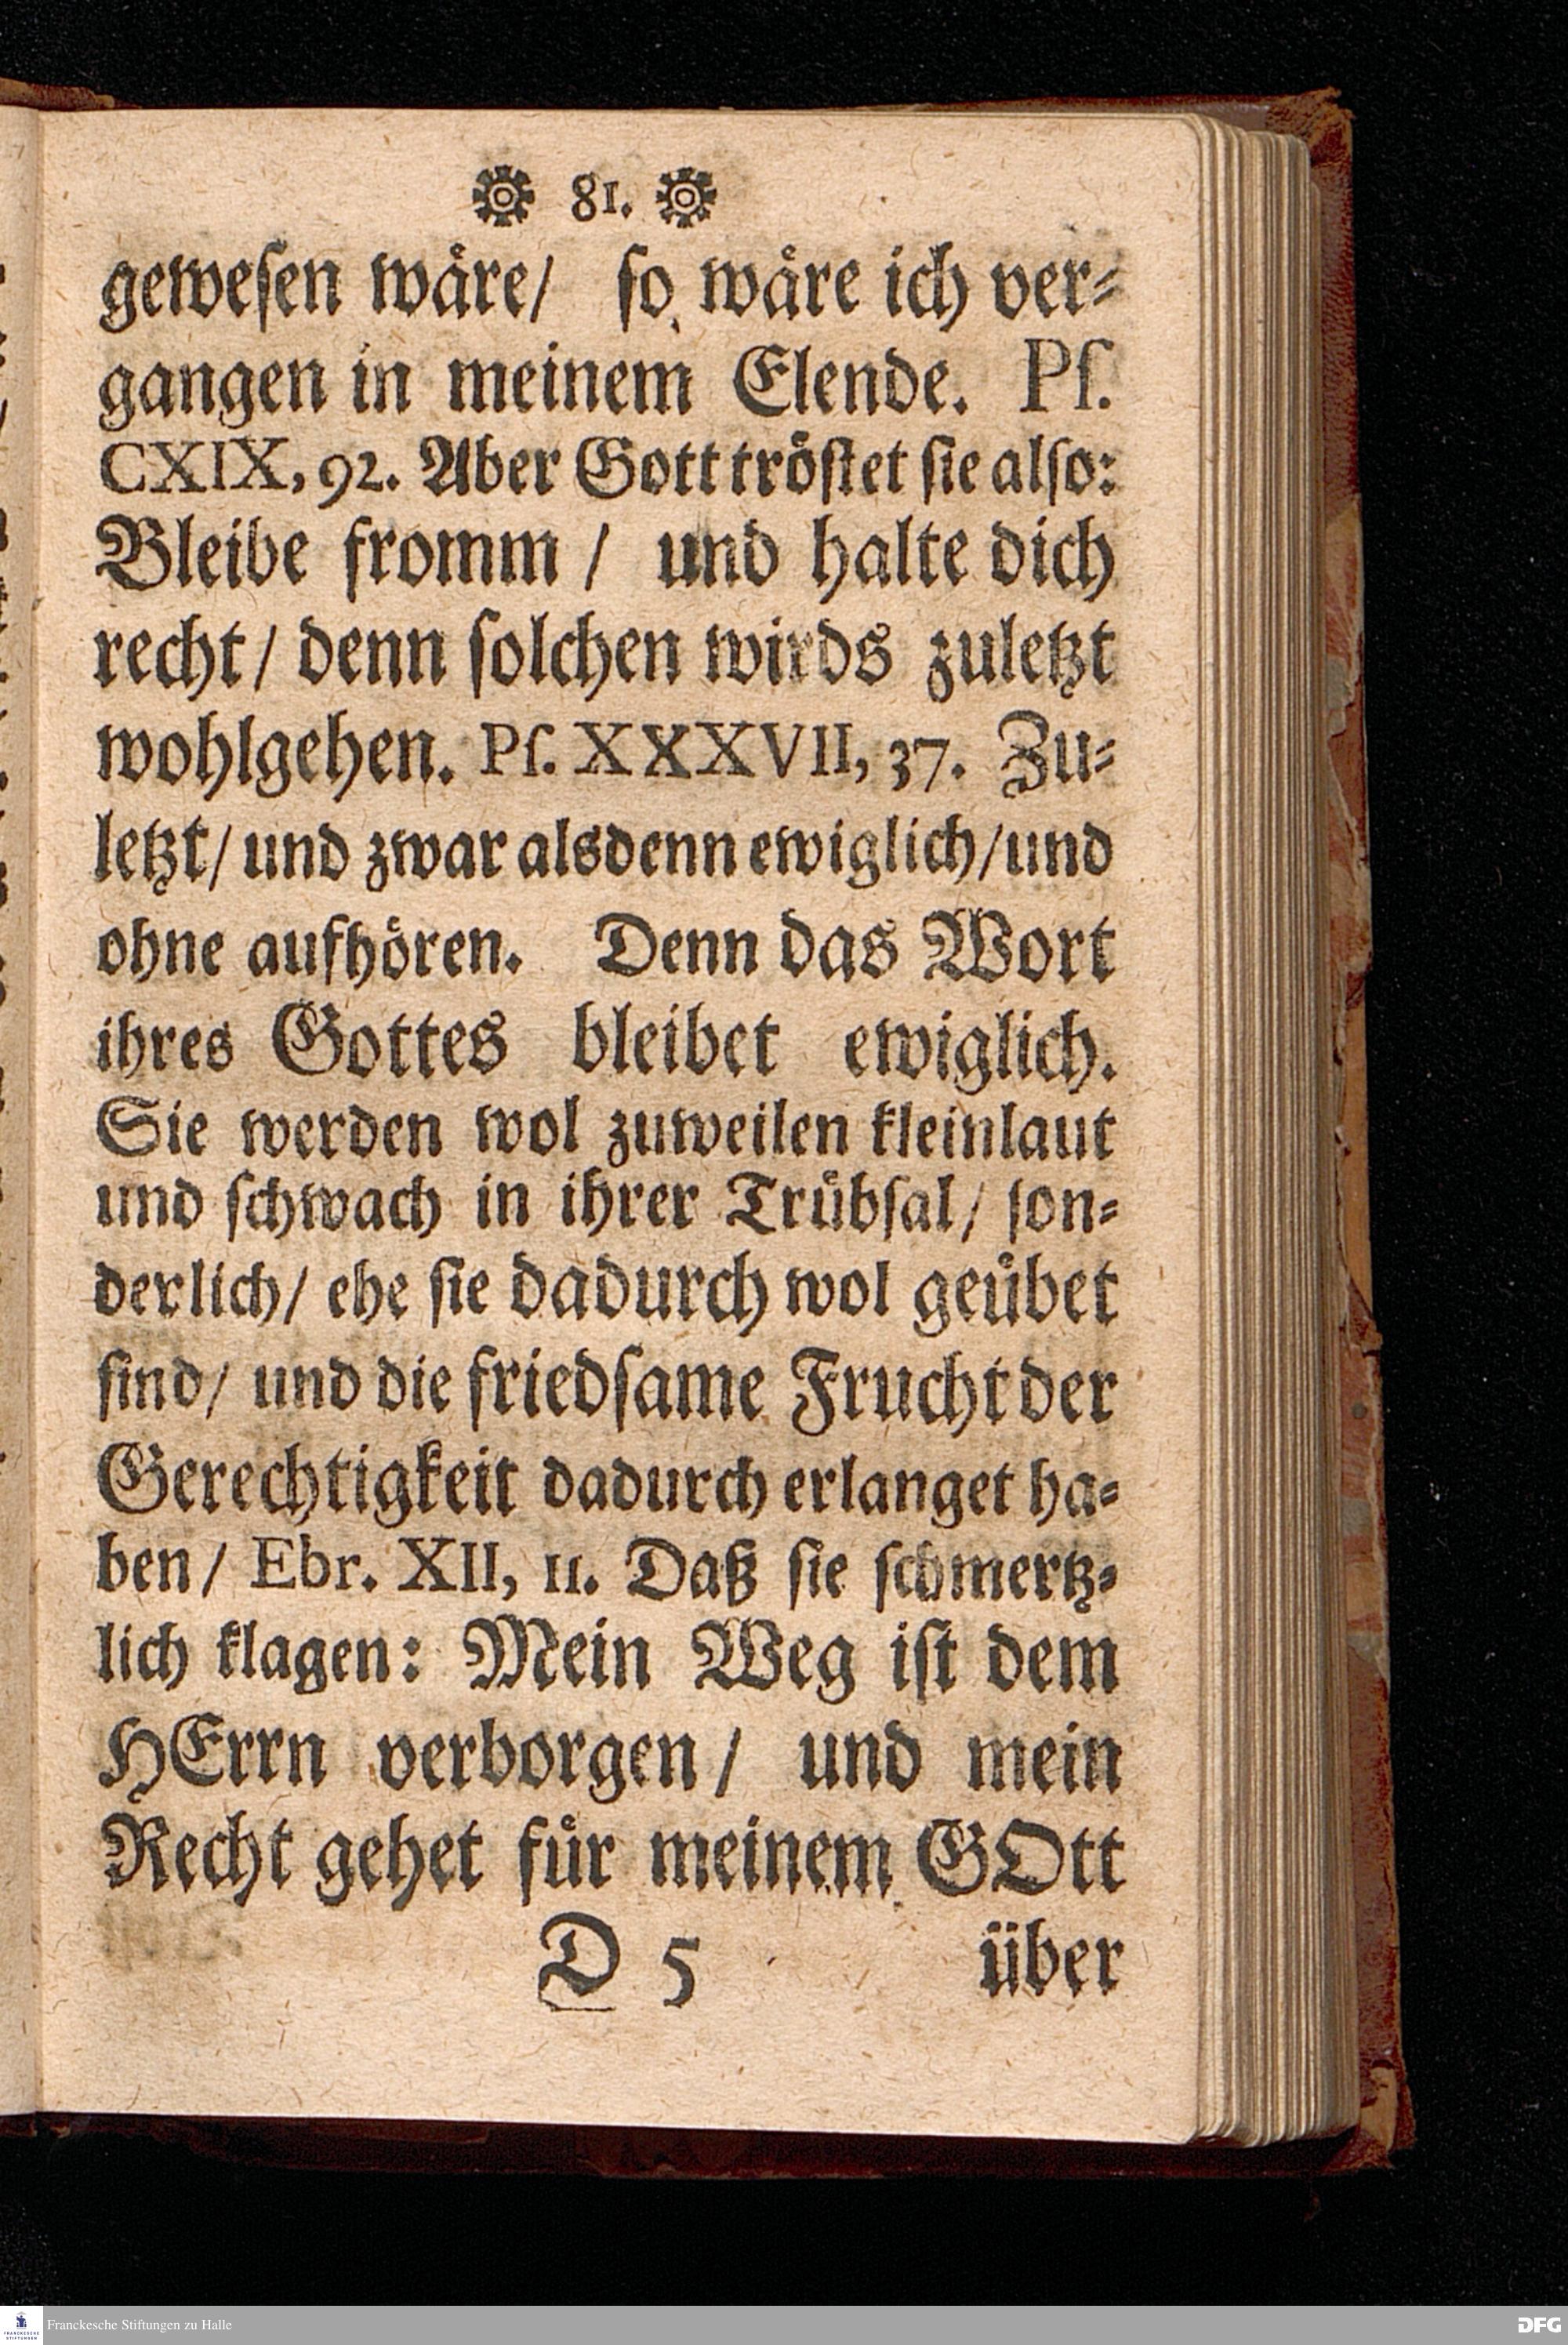 81.
geweſen wåre/ ſo wåre ich ver⸗
gangen in meinem Elende. Pſ.
CXIX, 92. Aber Gott tröſtet ſie alſo:
Bleibe fromm / und halte dich
recht / denn ſolchen wirds zuletzt
wohlgehen. Pſ. XXXVII, 37. Zu⸗
letzt / und zwar alsdenn ewiglich / und
ohne aufhören. Denn das Wort
ihres Gottes bleibet ewiglich.
Sie werden wol zuweilen kleinlaut
und ſchwach in ihrer Trůbſal / ſon⸗
derlich / ehe ſie dadurch wol geůbet
ſind / und die friedſame Frucht der
Gerechtigkeit dadurch erlanget ha⸗
ben / Ebr. XII, 11. Daß ſie ſchmertz⸗
lich klagen: Mein Weg iſt dem
HErrn verborgen / und mein
Recht gehet fůr meinem GOtt
D 5 über
FRANCKESCHE STIFTUNGEN
Franckesche Stiftungen zu Halle
DFG